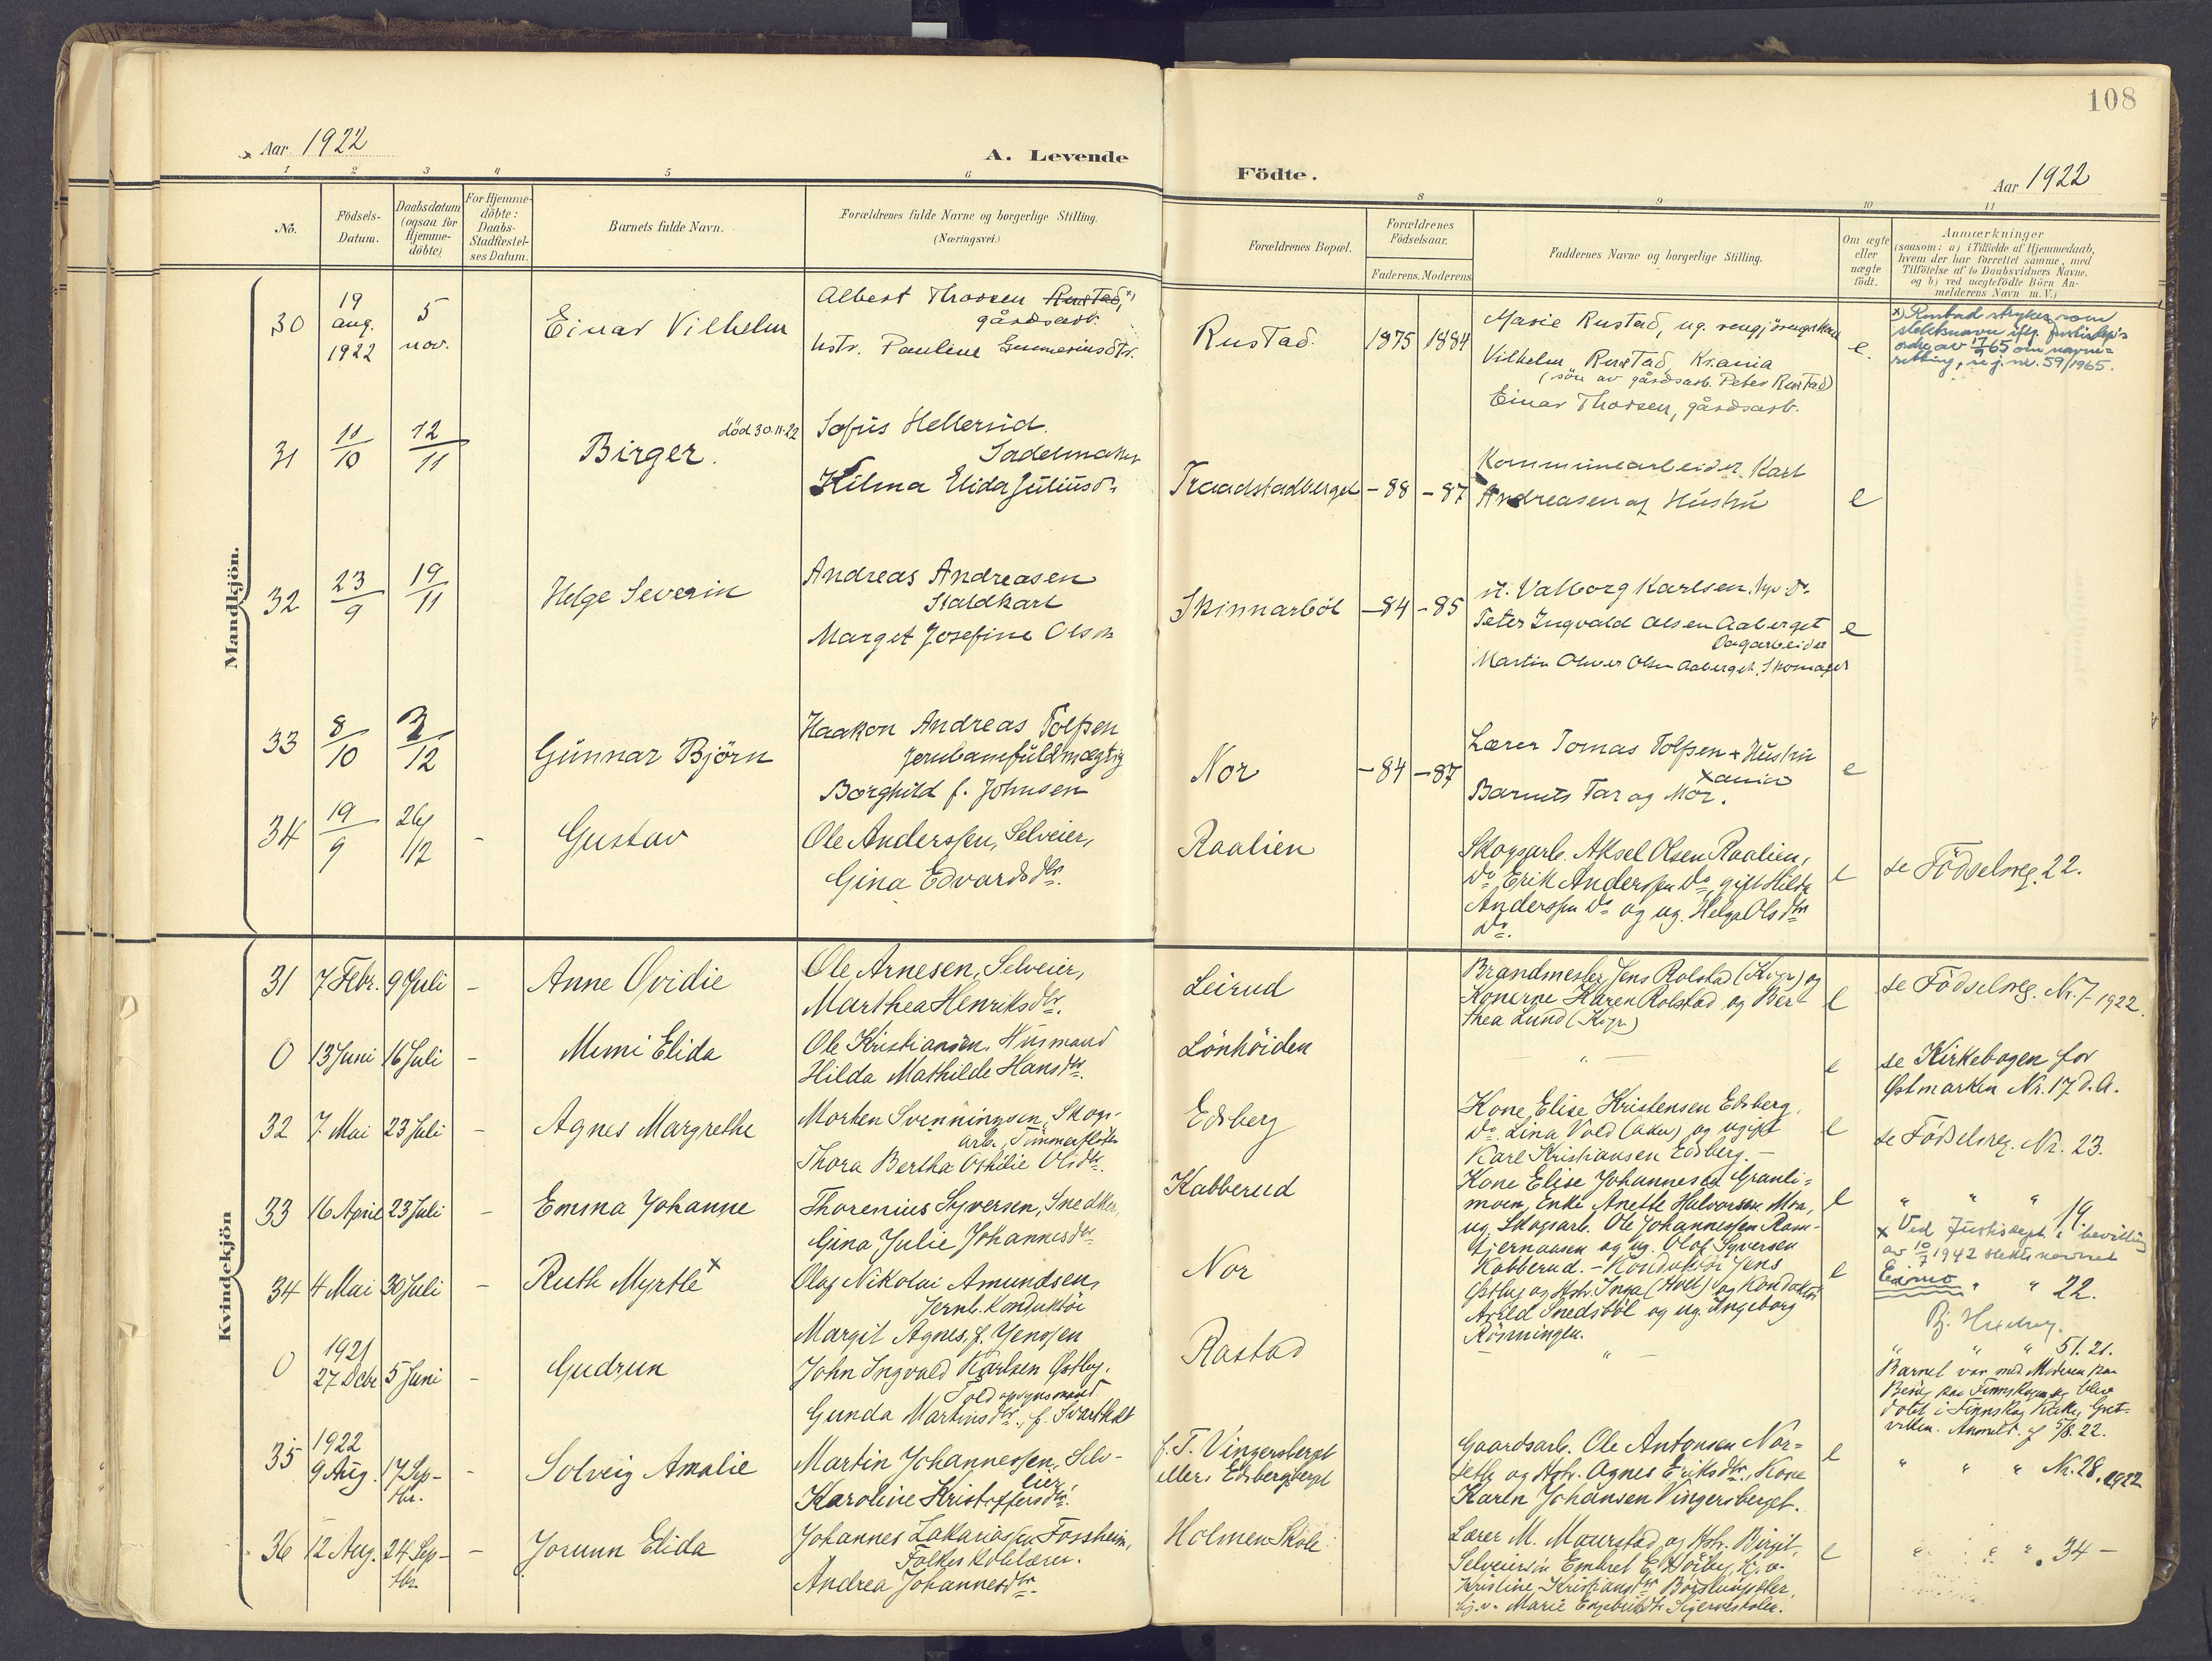 108
Aar 1922
A. Levende
Födte.
Aar 1922
1 2 3 4 5 6 8 9 10 11
No.
Födsels-
Datum.
Daabsdatum
(ogsaa for
Hjemme-
döbte)
For Hjemme-
döbte:
Daabs-
Stadfæstel-
ses Datum.
Barnets fulde Navn.
Forældrenes fulde Navne og borgerlige Stilling.
(Næringsvei.)
Forældrenes Bopæl.
Forældrenes
Födselsaar.
Faderens. Moderens.
Faddernes Navne og borgerlige Stilling.
Om ægte
eller
uægte
födt.
Anmærkninger
(saasom: a) i Tilfælde af Hjemmedaab,
hvem der har forrettet samme, med
Tilföielse af to Daabsvidners Navne.
og b) ved uægtefödte Börn An-
melderens Navn m. V.)
Mandkjön.
30
19
aug.
1922
5
nov.
Einar Vilhelm
Albert Thorsen Rustad, x)
gårdsarb.
hstr. Pauline Gunneriusdtr.
Rustad.
1875 1884
Marie Rustad, ug. rengjöringskone
Vilhelm Rustad, Kr.ania
(sön av gårdsarb. Peter Rustad)
Einar Thorsen, gårdsarb.
e.
x) Rustad strykes som
slektsnavn iflg. justisdep's
ordre av 17/9 65 om navne-
retting, se j. nr. 59/1965.
31
11/10
12/11
Birger.
död 30.11.22
Sofus Hellerud.
Sadelmaker
Hilma Elida Juliusdr
Traadstadberget
- 88 - 87
Kommunearbeider Karl
Andreasen og Hustru
e
32
23/9
19/11
Helge Severin
Andreas Andreasen
Staldkarl
Marget Josefine Olsdr
Skinnarböl
- 84 - 85
Valborg Karlsen
Peter Ingvald Olsen Aaberget
Dagarbeider
Martin Oliver Olsen Aaberget, Skomager
e
33
8/10
3/12
Gunnar Björn
Haakon Andreas Tolfsen
Jernbanefuldmægtig
Borghild f. Johnsen
Nor
- 84 - 87
Lærer Tomas Tolfsen + Hustru
Xania
Barnets Far og Mor.
e
34
19/9
26/12
-
Gustav
Ole Anderssen, Selveier,
Gina Edvardsdtr.
Raalien
Skogsarb. Aksel Olsen Raalien,
Do Erik Anderssen Do, gift Hilda
Anderssen Do og ug. Helga Olsdtr
Do.
e
se Födselsreg. 22.
Kvindekjön
31
7 Febr.
9 Juli
-
Anne Ovidie
Ole Arnesen, Selveier,
Marthea Henriksdtr.
Leirud
Brandmester Jens Rolstad (Kvgr) og
Konerne Karen Rolstad og Ber-
thea Lund (Kvgr)
e
se Födselsreg. Nr. 7 1922.
0
13 Juni
16 Juli
-
Mimi Elida
Ole Kristiansen, Husmand
Hilda Mathilde Hansdtr.
Lönhöiden
" —
e
se Kirkebogen for
Östmarken Nr. 17 d. A.
32
7 Mai
23 Juli
-
Agnes Margrethe
Morten Svenningsen, Skogs-
arb., Tömmerflöter
Thora Bertha Othilie Olsdtr.
Edsberg
Kone Elise Kristensen Edsberg,
Do Lina Vold (Aker) og ugift
Karl Kristiansen Edsberg. -
e
se Födselsreg. Nr. 23.
33
16 April
23 Juli
-
Emma Johanne
Thorenius Syversen, Snedker,
Gina Julie Johannesdtr
Kabberud
Kone Elise Johannesen Granli-
moen, Enke Anette Halvorsen Moa,
ug. Skogsarb. Ole Johannessen Ram-
stjernaasen og ug. Olof Syversen
Kabberud. -
e
" " " 19.
34
4 Mai
30 Juli
-
Ruth Myrtle x
Olaf Nikolai Amundsen,
Jernb. Konduktör
Margit Agnes, f. Jenssen
Nor
Konduktör Jens
Östby og Hstr. Inga (Hvel) og Konduktör
Arild Snedsböl og ug. Ingeborg
Rönningen.
e
x Ved Justisdept's bevilling
av 10/7 1942 slektsnavnet
Eimo
" " 22.
0
1921
27 Decbr
5 Juni
-
Gudrun
John Ingvald Karlsen Östby,
Toldopsynsmand
Gunda Martinsdtr., f. Svarthol
Rastad
— " —
" " " 51. 21.
Barnet var med Moderen paa
Besög paa Finnskogen og blev
döbt i Finnskog Kirke, Gret-
vikken. Anmeldt 5/8. 22.
35
1922
9 Aug.
17 Sep-
tbr.
-
Solveig Amalie
Martin Johannessen, Selv-
eier
Karoline Kristoffersdtr.
f. T. Vingersberget
eller Edsbergsberget
Gaardsarb. Ole Antonsen Nor-
seth og Hstr. Agnes Eriksdtr, Kone
Karen Johansen Vingersberget.
e
" " " Nr. 28. 1922
36
12 Aug.
24 Sep-
tbr.
-
Jorunn Elida
Johannes Zakariassen Forsheim,
Folkeskolelærer.
Andrea Johannesdtr.
Holmen Skole
Lærer M. Maurstad og Hstr. Birgit,
Selveiersön Embret E. Dörby,
Kristine Kristiansdtr
Marie Engebretsdtr
e
" " " 34 -